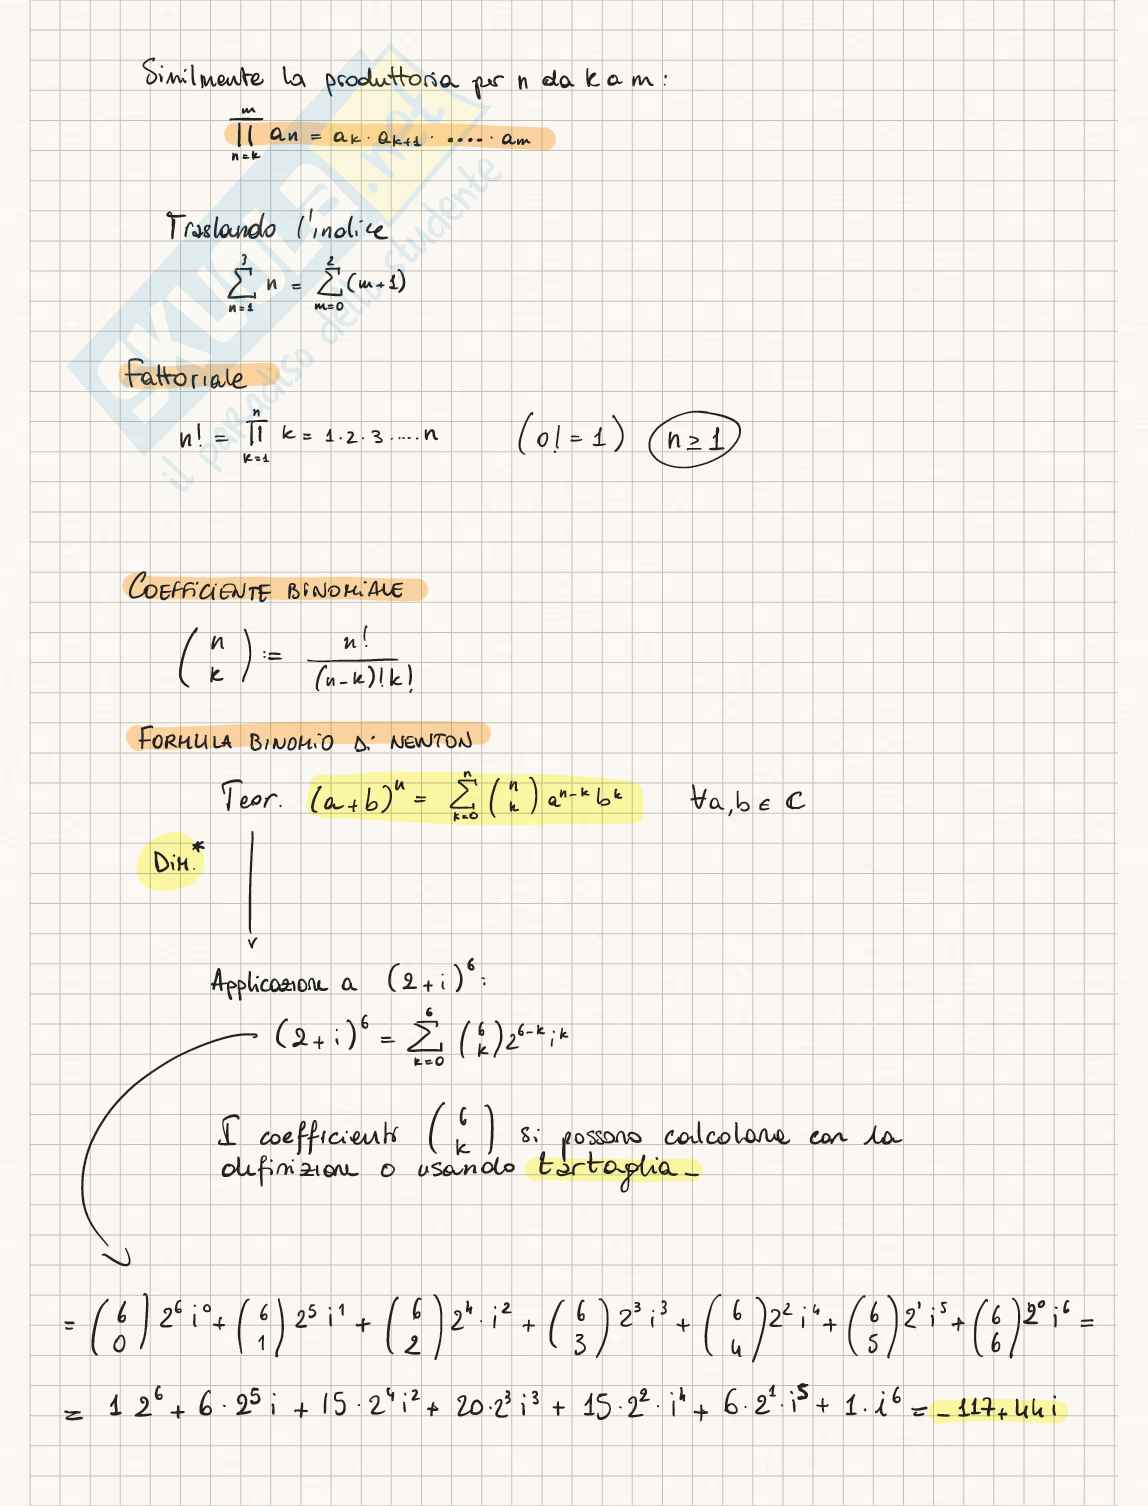 Similmente la produttoria per n da k a m:
∏_{n=k}^{m} a_n = a_k · a_{k+1} · ..... · a_m
Traslando l'indice
∑_{n=1}^{3} n = ∑_{m=0}^{2} (m+1)
Fattoriale
n! = ∏_{k=1}^{n} k = 1·2·3·....·n (0! = 1) n ≥ 1
COEFFICIENTE BINOMIALE
(n k) := n! / (n-k)! k!
FORMULA BINOMIO Di NEWTON
Teor. (a+b)^n = ∑_{k=0}^{n} (n k) a^{n-k} b^k ∀a,b ∈ ℂ
DIM.*
Applicazione a (2+i)^6:
(2+i)^6 = ∑_{k=0}^{6} (6 k) 2^{6-k} i^k
I coefficienti (6 k) si possono calcolare con la
definizione o usando tartaglia_
= (6 0) 2^6 i^0 + (6 1) 2^5 i^1 + (6 2) 2^4 · i^2 + (6 3) 2^3 i^3 + (6 4) 2^2 i^4 + (6 5) 2^1 i^5 + (6 6) 2^0 i^6 =
= 1 2^6 + 6·2^5 i + 15·2^4 i^2 + 20·2^3 i^3 + 15·2^2 · i^4 + 6·2^1 · i^5 + 1·i^6 = -117+44i
SKUOLA.net
il paradiso dello studente